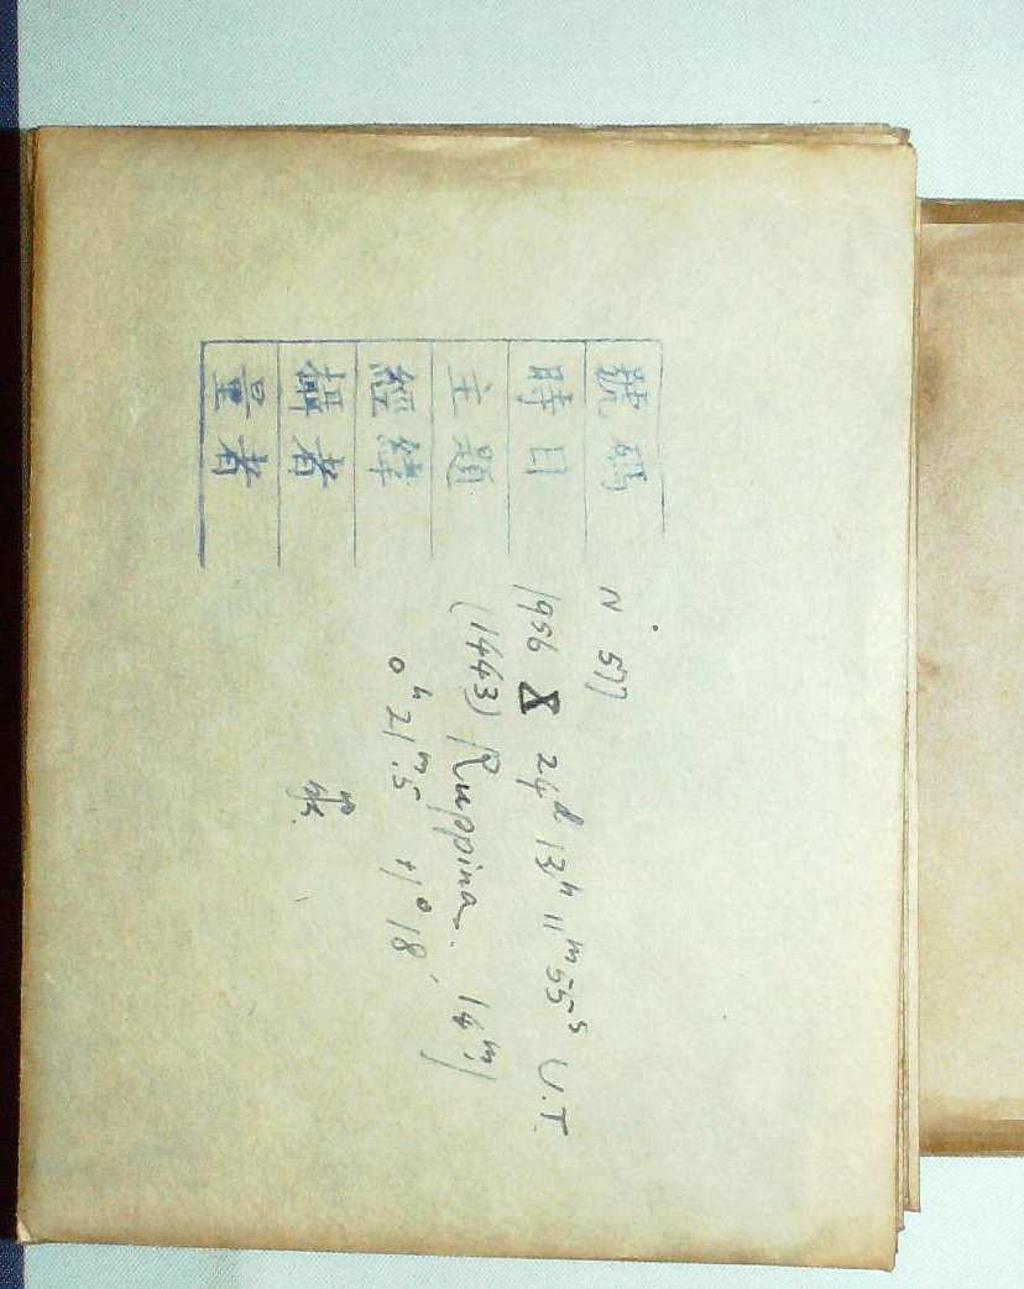 號碼 N 577
時日 1956 X 24ᵈ 13ʰ 11ᵐ 55ˢ U.T.
主題 (1443) Ruppina. 14ᵐ)
經緯 0ʰ 21ᵐ.5 +1° 18′
攝者
量者